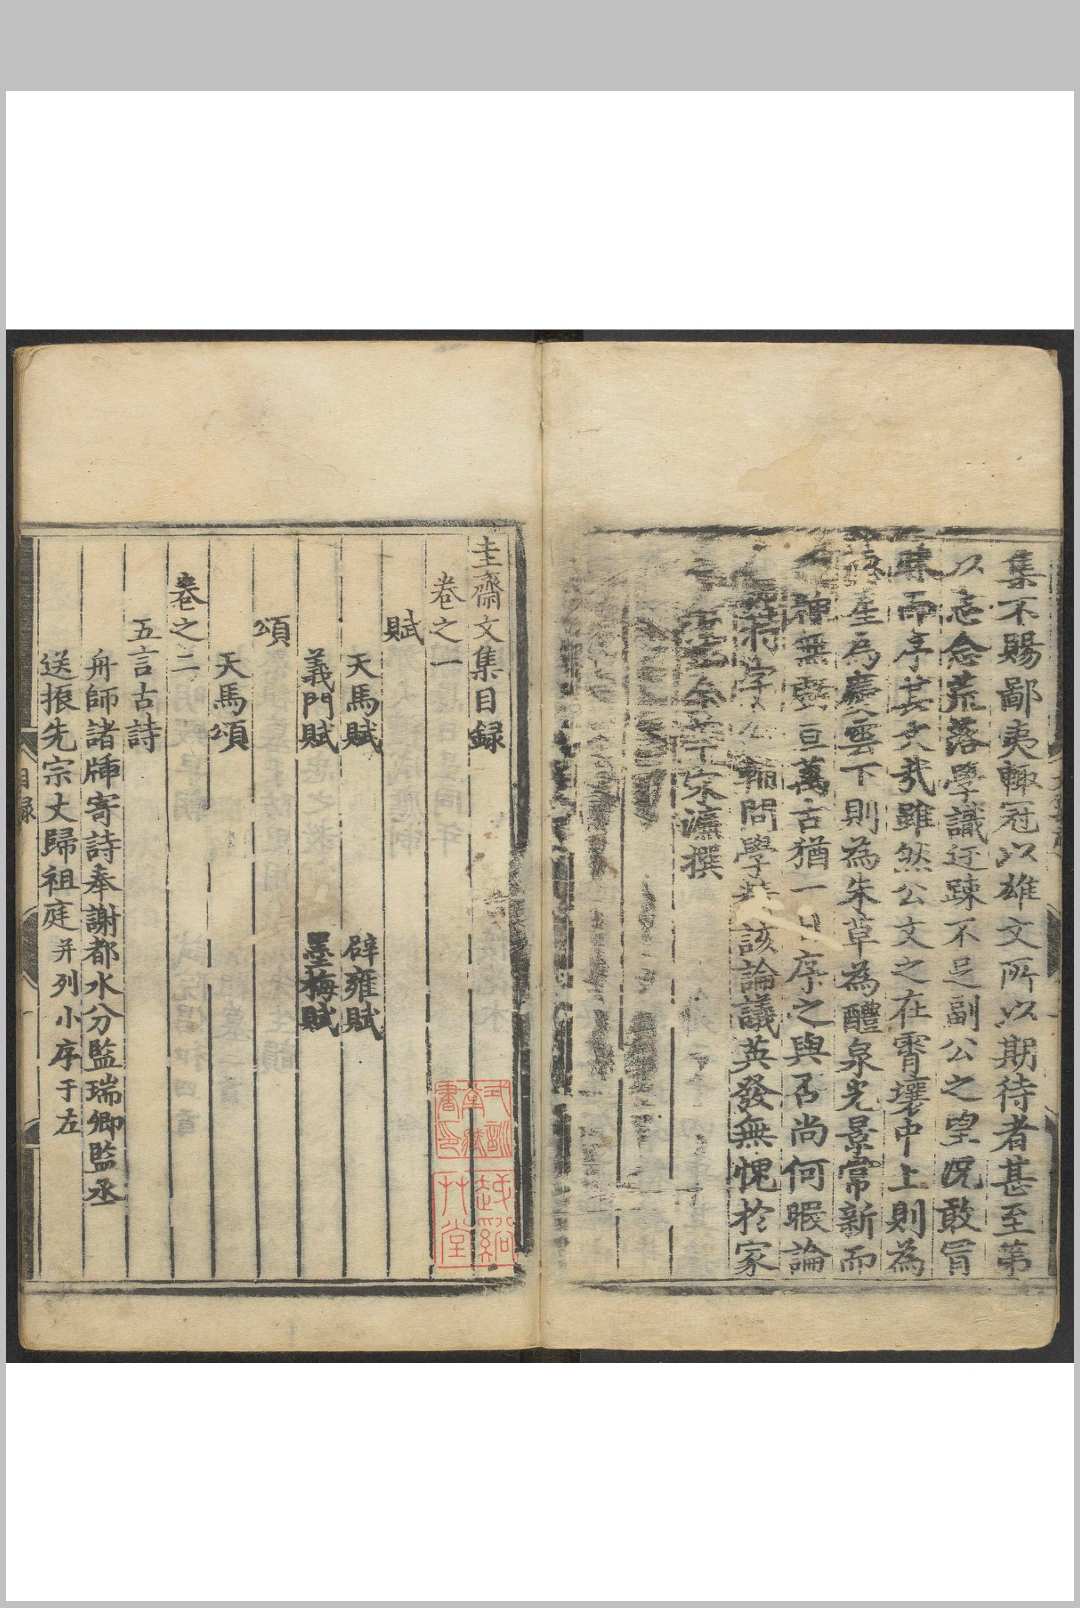 集不賜鄙夷輙冠以雄文所以期待者甚至第
以忘念荒落學識迂踈不足副公之望况敢冐
而序其文哉雖然公文之在霄壤中上則為
星為慶雲下則為朱草為醴泉光景常新而
神無虧亘萬古猶一日序之與否尚何暇論
持字公輔問學該論議英發無愧於家
云金華宋濂撰
圭齋文集目録
卷之一
賦
天馬賦 辟雍賦
義門賦 墨梅賦
頌
天馬頌
卷之二
五言古詩
舟師諸㛃寄詩奉謝都水分監瑞卿監丞
送振先宗丈歸祖庭并列小序于左
目録
式訓堂藏書印
谿艸堂